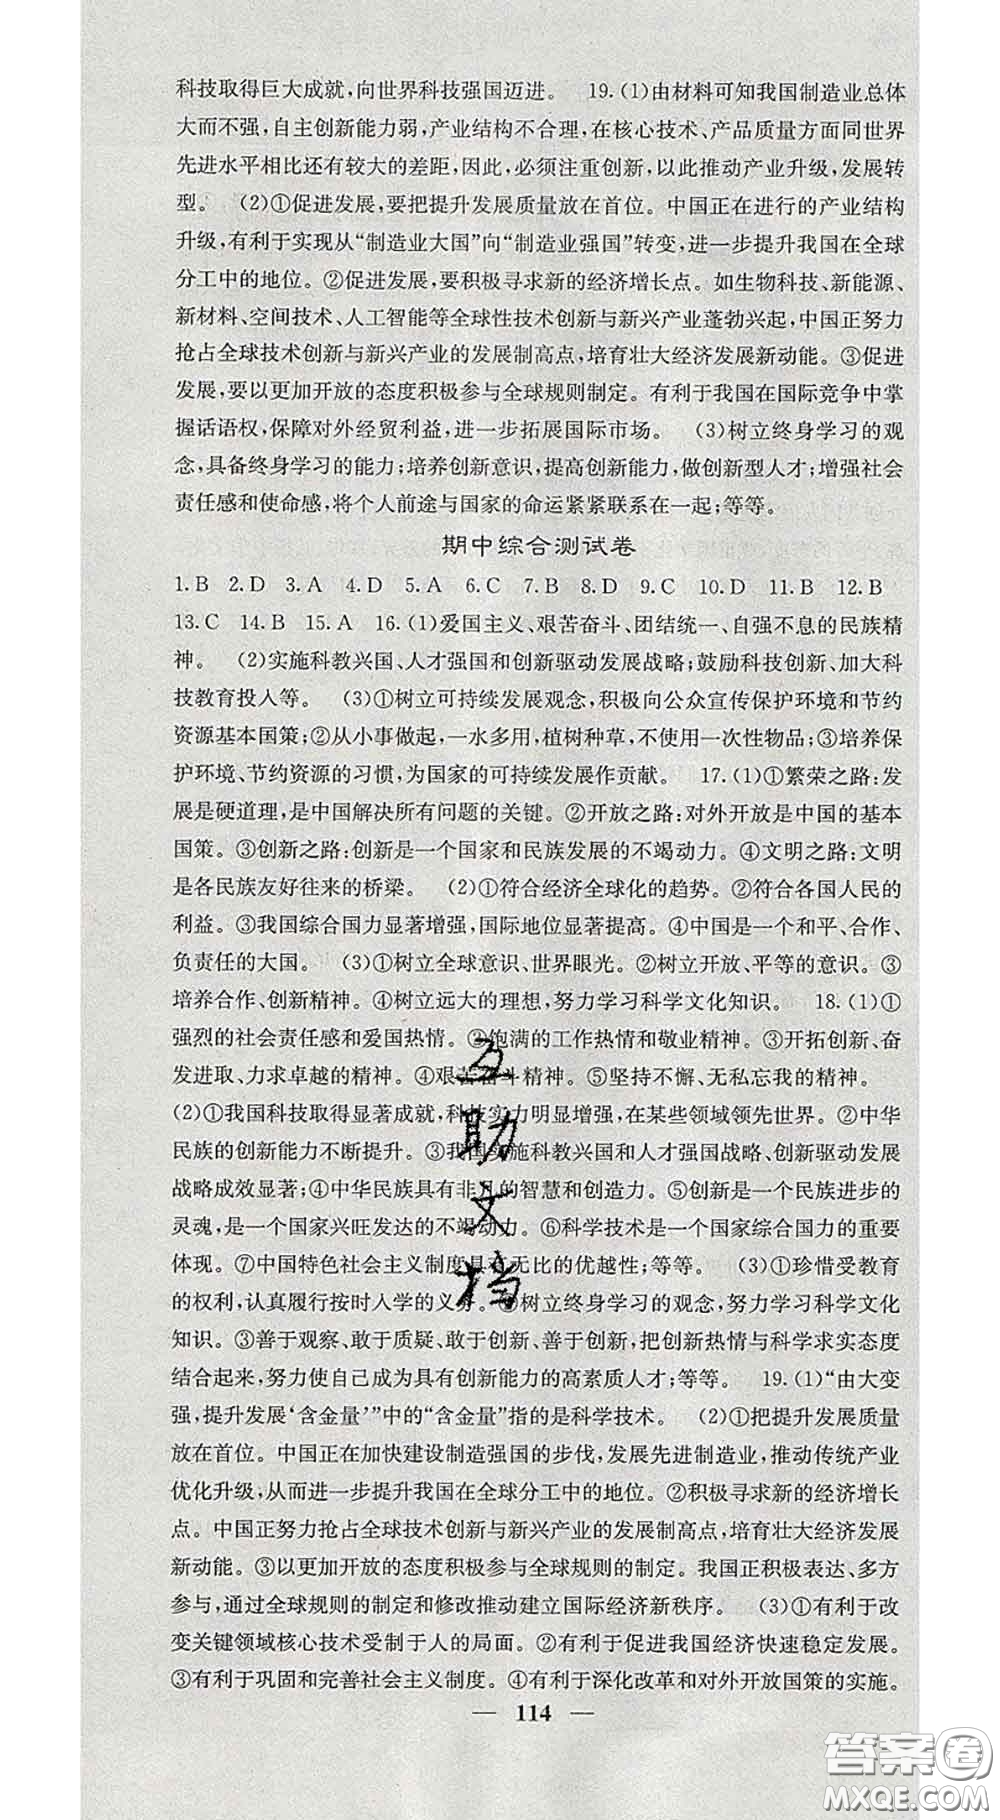 科技取得巨大成就,向世界科技强国迈进。 19.(1)由材料可知我国制造业总体
大而不强,自主创新能力弱,产业结构不合理,在核心技术、产品质量方面同世界
先进水平相比还有较大的差距,因此,必须注重创新,以此推动产业升级,发展转
型。 (2)①促进发展,要把提升发展质量放在首位。中国正在进行的产业结构
升级,有利于实现从“制造业大国”向“制造业强国”转变,进一步提升我国在全球
分工中的地位。②促进发展,要积极寻求新的经济增长点。如生物科技、新能源、
新材料、空间技术、人工智能等全球性技术创新与新兴产业蓬勃兴起,中国正努力
抢占全球技术创新与新兴产业的发展制高点,培育壮大经济发展新动能。③促进
发展,要以更加开放的态度积极参与全球规则制定。有利于我国在国际竞争中掌
握话语权,保障对外经贸利益,进一步拓展国际市场。 (3)树立终身学习的观
念,具备终身学习的能力;培养创新意识,提高创新能力,做创新型人才;增强社会
责任感和使命感,将个人前途与国家的命运紧紧联系在一起;等等。
期中综合测试卷
1.B 2.D 3.A 4.D 5.A 6.C 7.B 8.D 9.C 10.D 11.B 12.B
13.C 14.B 15.A 16.(1)爱国主义、艰苦奋斗、团结统一、自强不息的民族精
神。 (2)实施科教兴国、人才强国和创新驱动发展战略;鼓励科技创新、加大科
技教育投人等。 (3)①树立可持续发展观念,积极向公众宣传保护环境和节约
资源基本国策;②从小事做起,一水多用,植树种草,不使用一次性物品;③培养保
护环境、节约资源的习惯,为国家的可持续发展作贡献。 17.(1)①繁荣之路:发
展是硬道理,是中国解决所有问题的关键。②开放之路:对外开放是中国的基本
国策。③创新之路:创新是一个国家和民族发展的不竭动力。④文明之路:文明
是各民族友好往来的桥梁。 (2)①符合经济全球化的趋势。②符合各国人民的
利益。③我国综合国力显著增强,国际地位显著提高。④中国是一个和平、合作、
负责任的大国。 (3)①树立全球意识、世界眼光。②树立开放、平等的意识。③
培养合作、创新精神。④树立远大的理想,努力学习科学文化知识。 18.(1)①
强烈的社会责任感和爱国热情。②饱满的工作热情和敬业精神。③开拓创新、奋
发进取、力求卓越的精神。④艰苦奋斗精神。⑤坚持不懈、无私忘我的精神。
(2)①我国科技取得显著成就,科技实力明显增强,在某些领域领先世界。②中华
民族的创新能力不断提升。③我国实施科教兴国和人才强国战略、创新驱动发展
战略成效显著;④中华民族具有非凡的智慧和创造力。⑤创新是一个民族进步的
灵魂,是一个国家兴旺发达的不竭动力。⑥科学技术是一个国家综合国力的重要
体现。⑦中国特色社会主义制度具有无比的优越性;等等。 (3)①珍惜受教育
的权利,认真履行按时人学的义务。②树立终身学习的观念,努力学习科学文化
知识。③善于观察、敢于质疑、敢于创新、善于创新,把创新热情与科学求实态度
结合起来,努力使自己成为具有创新能力的高素质人才;等等。 19.(1)“由大变
强,提升发展‘含金量’”中的“含金量”指的是科学技术。 (2)①把提升发展质量
放在首位。中国正在加快建设制造强国的步伐,发展先进制造业,推动传统产业
优化升级,从而进一步提升我国在全球分工中的地位。②积极寻求新的经济增长
点。中国正努力抢占全球技术创新与新兴产业的发展制高点,培育壮大经济发展
新动能。③以更加开放的态度积极参与全球规则的制定。我国正积极表达、多方
参与,通过全球规则的制定和修改推动建立国际经济新秩序。 (3)①有利于改
变关键领域核心技术受制于人的局面。②有利于促进我国经济快速稳定发展。
③有利于巩固和完善社会主义制度。④有利于深化改革和对外开放国策的实施。
— 114 —
互助文档
答案圈
MXQE.COM